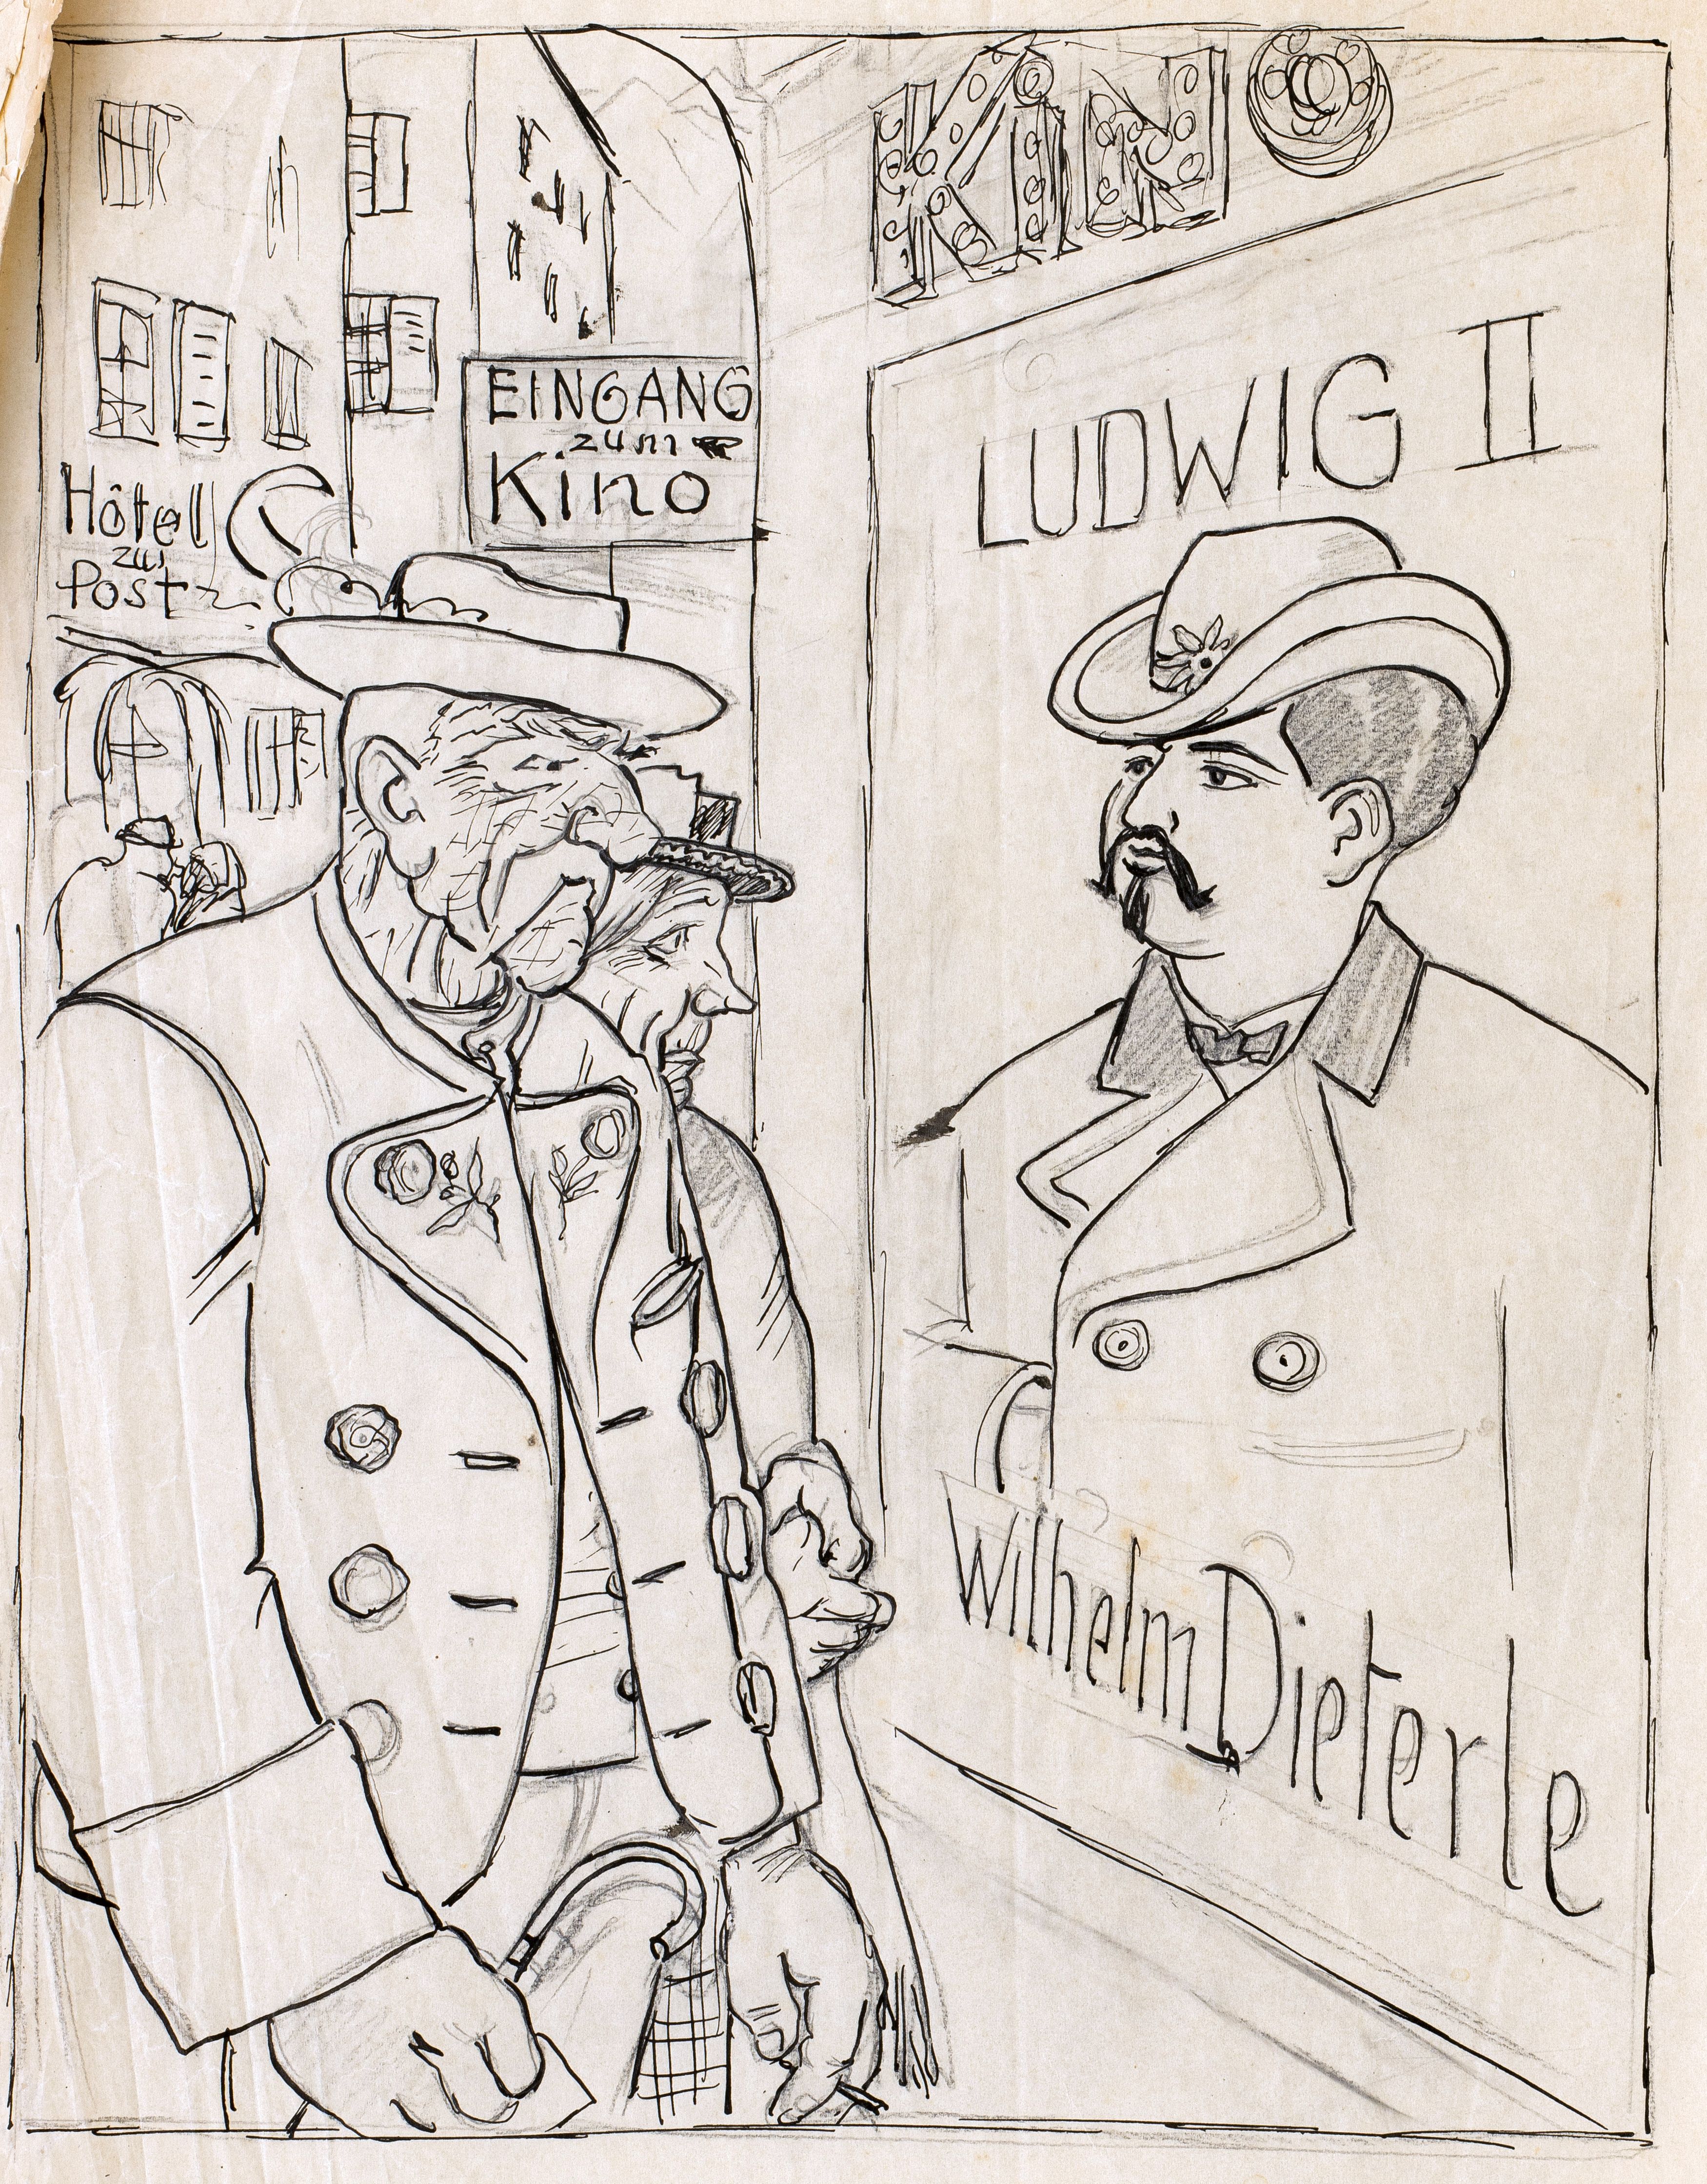 KINO
EINGANG
zum
Kino
Hôtel
zur
Post
LUDWIG II
Wilhelm Dieterle